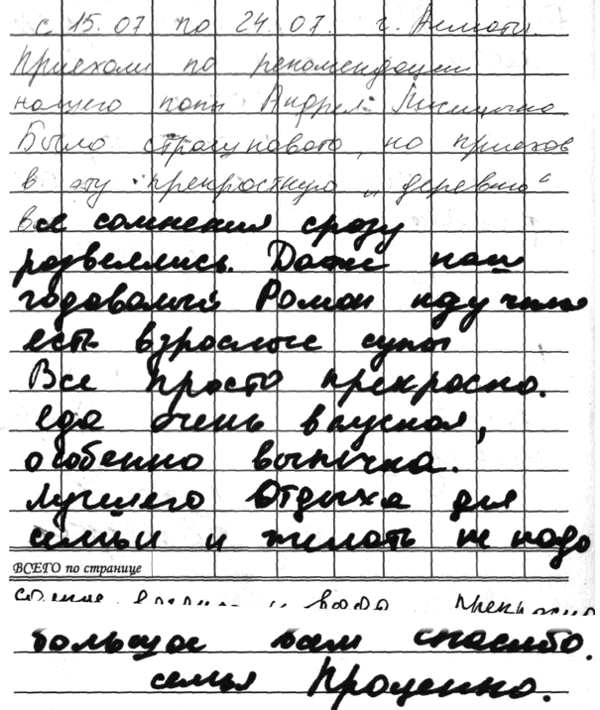 с 15.07 по 24.07. г. Алматы.
Приехали по рекомендации
нашего папы Андрея
Было страшновато, но приехав
в эту прекрасную „деревню“
все сомнения сразу
развеялись. Даже наш
годовалый Роман научился
есть взрослые супы
Все просто прекрасно.
еда очень вкусная,
особенно выпечка.
лучшего отдыха для
семьи и желать не надо
ВСЕГО по странице
и вода прекрасно
большое вам спасибо.
семья Проценко.